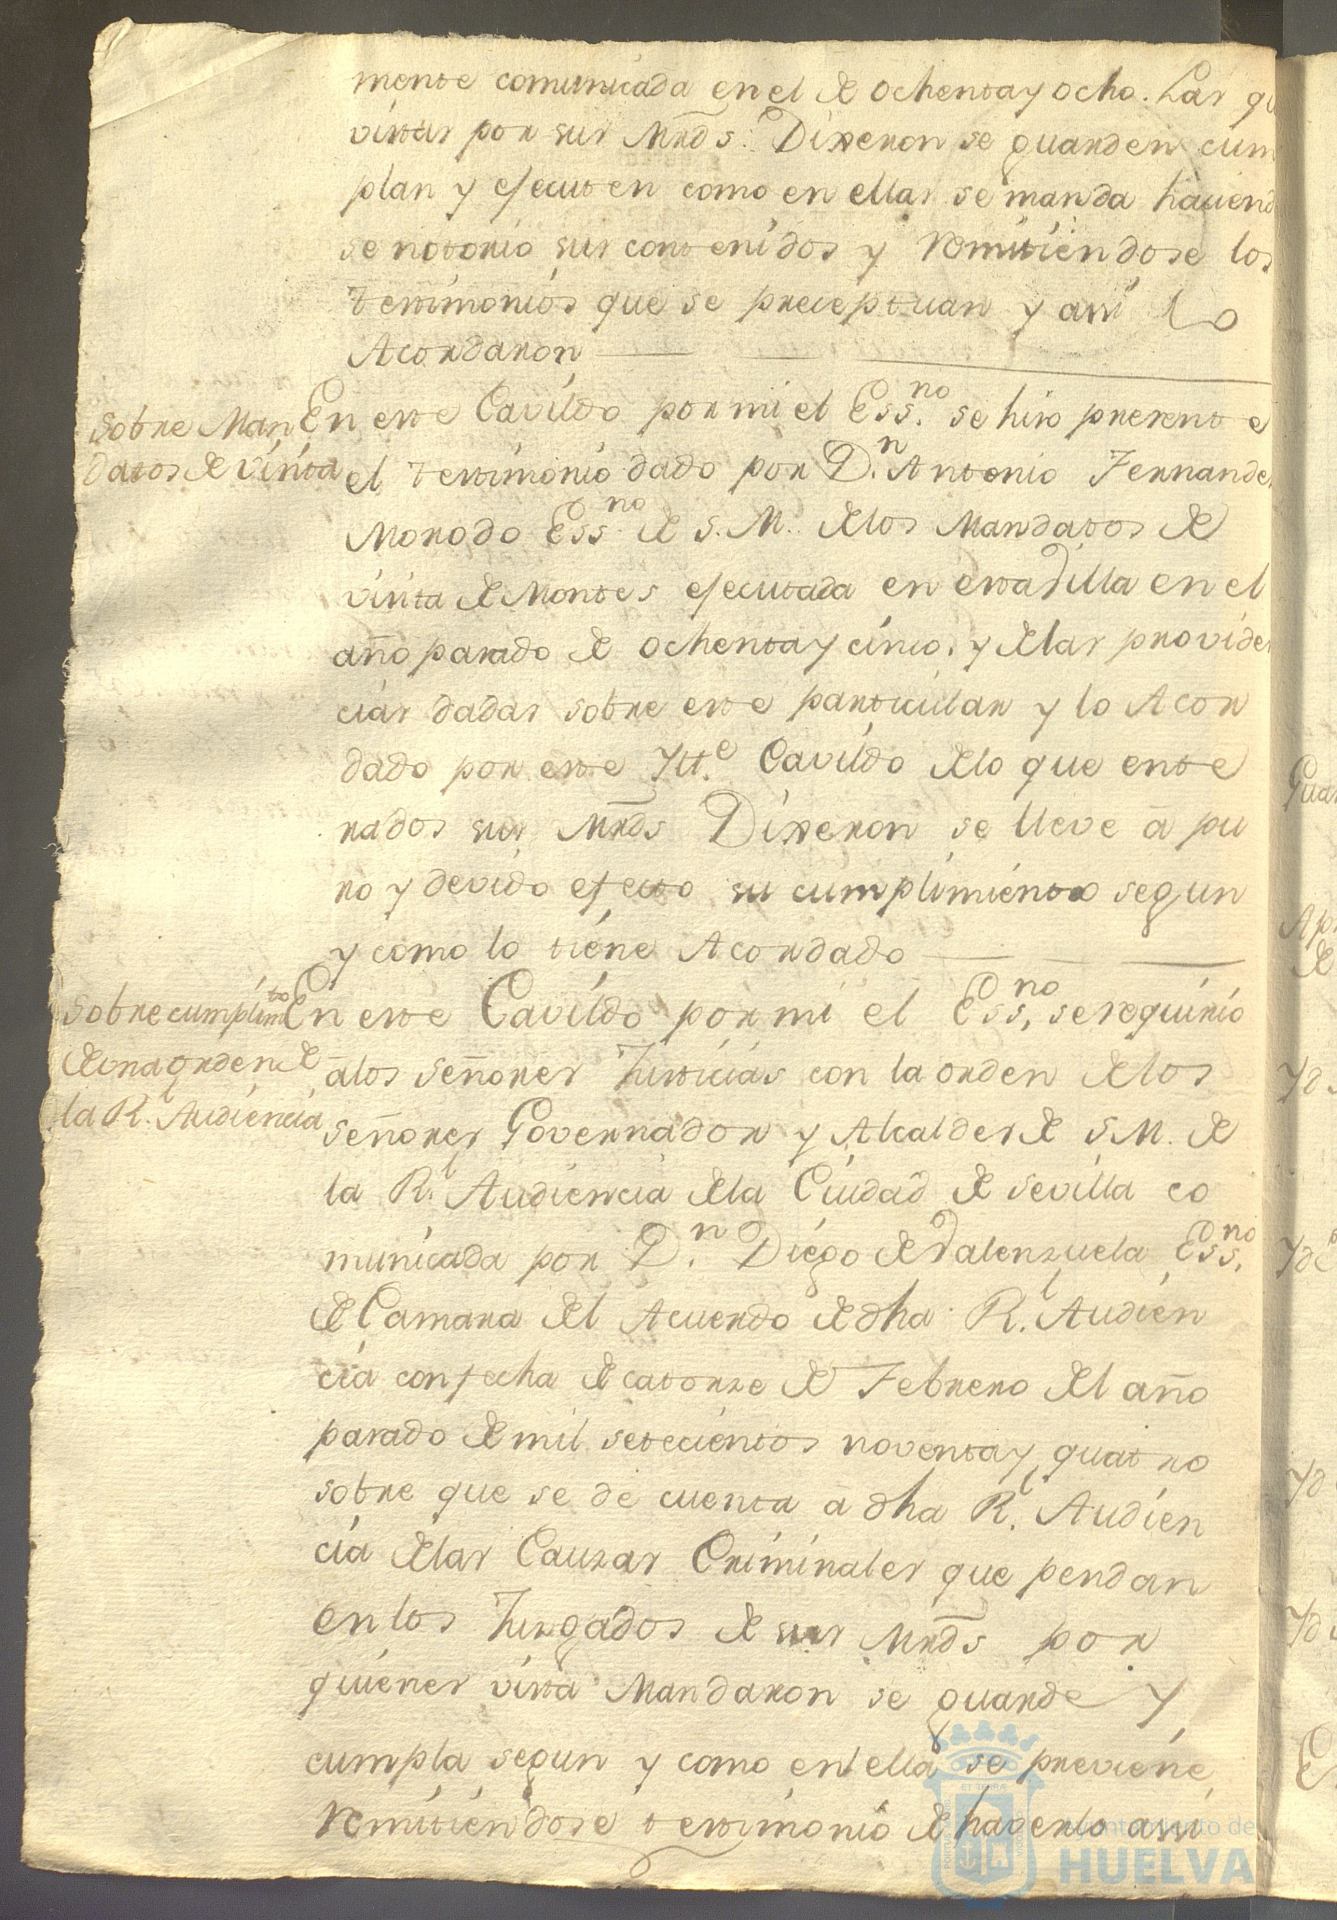 mente comunicada en el de ochenta y ocho. Las qe
vistas por sus Mrds. Dixeron se guarden cum
plan y ejecuten como en ellas se manda haciend
se notorio sus contenidos y remitiendose los
testimonios que se preceptuan y assi lo
Acordaron
Sobre Man
datos de visita
En este Cavildo por mi el Ess.no se hiso presente
el testimonio dado por D.n Antonio Fernande
Morodo Ess.no de S. M. de los Mandatos de
visita de Montes ejecutada en esta Villa en el
año pasado de ochenta y cinco. y de las providen
cias dadas sobre este particular y lo Acor
dado por este Ytt.e Cavildo de lo que ente
rados sus Mrds Dixeron se lleve à pu
ro y devido efecto su cumplimiento segun
y como lo tiene Acordado
Sobre cumplimto
de una orden de
la R.l Audiencia
En este Cavildo por mi el Ess.no se requirio
à los señores Justicias con la orden de los
señores Governador y Alcaldes de S. M. de
la R.l Audiencia de la Ciudad de Sevilla co
municada por D.n Diego de Valenzuela Ess.no
de Camara del Acuerdo de dha R.l Audien
cia con fecha de catorze de Febrero del año
pasado de mil setecientos noventa y quatro
sobre que se de cuenta à dha R.l Audien
cia de las Cauzas Criminales que pendan
en los Juzgados de sus Mrds por
quienes vista Mandaron se guarde y
cumpla segun y como en ella se previene
remitiendose testimonio de haverlo assi
Ayuntamiento de
HUELVA